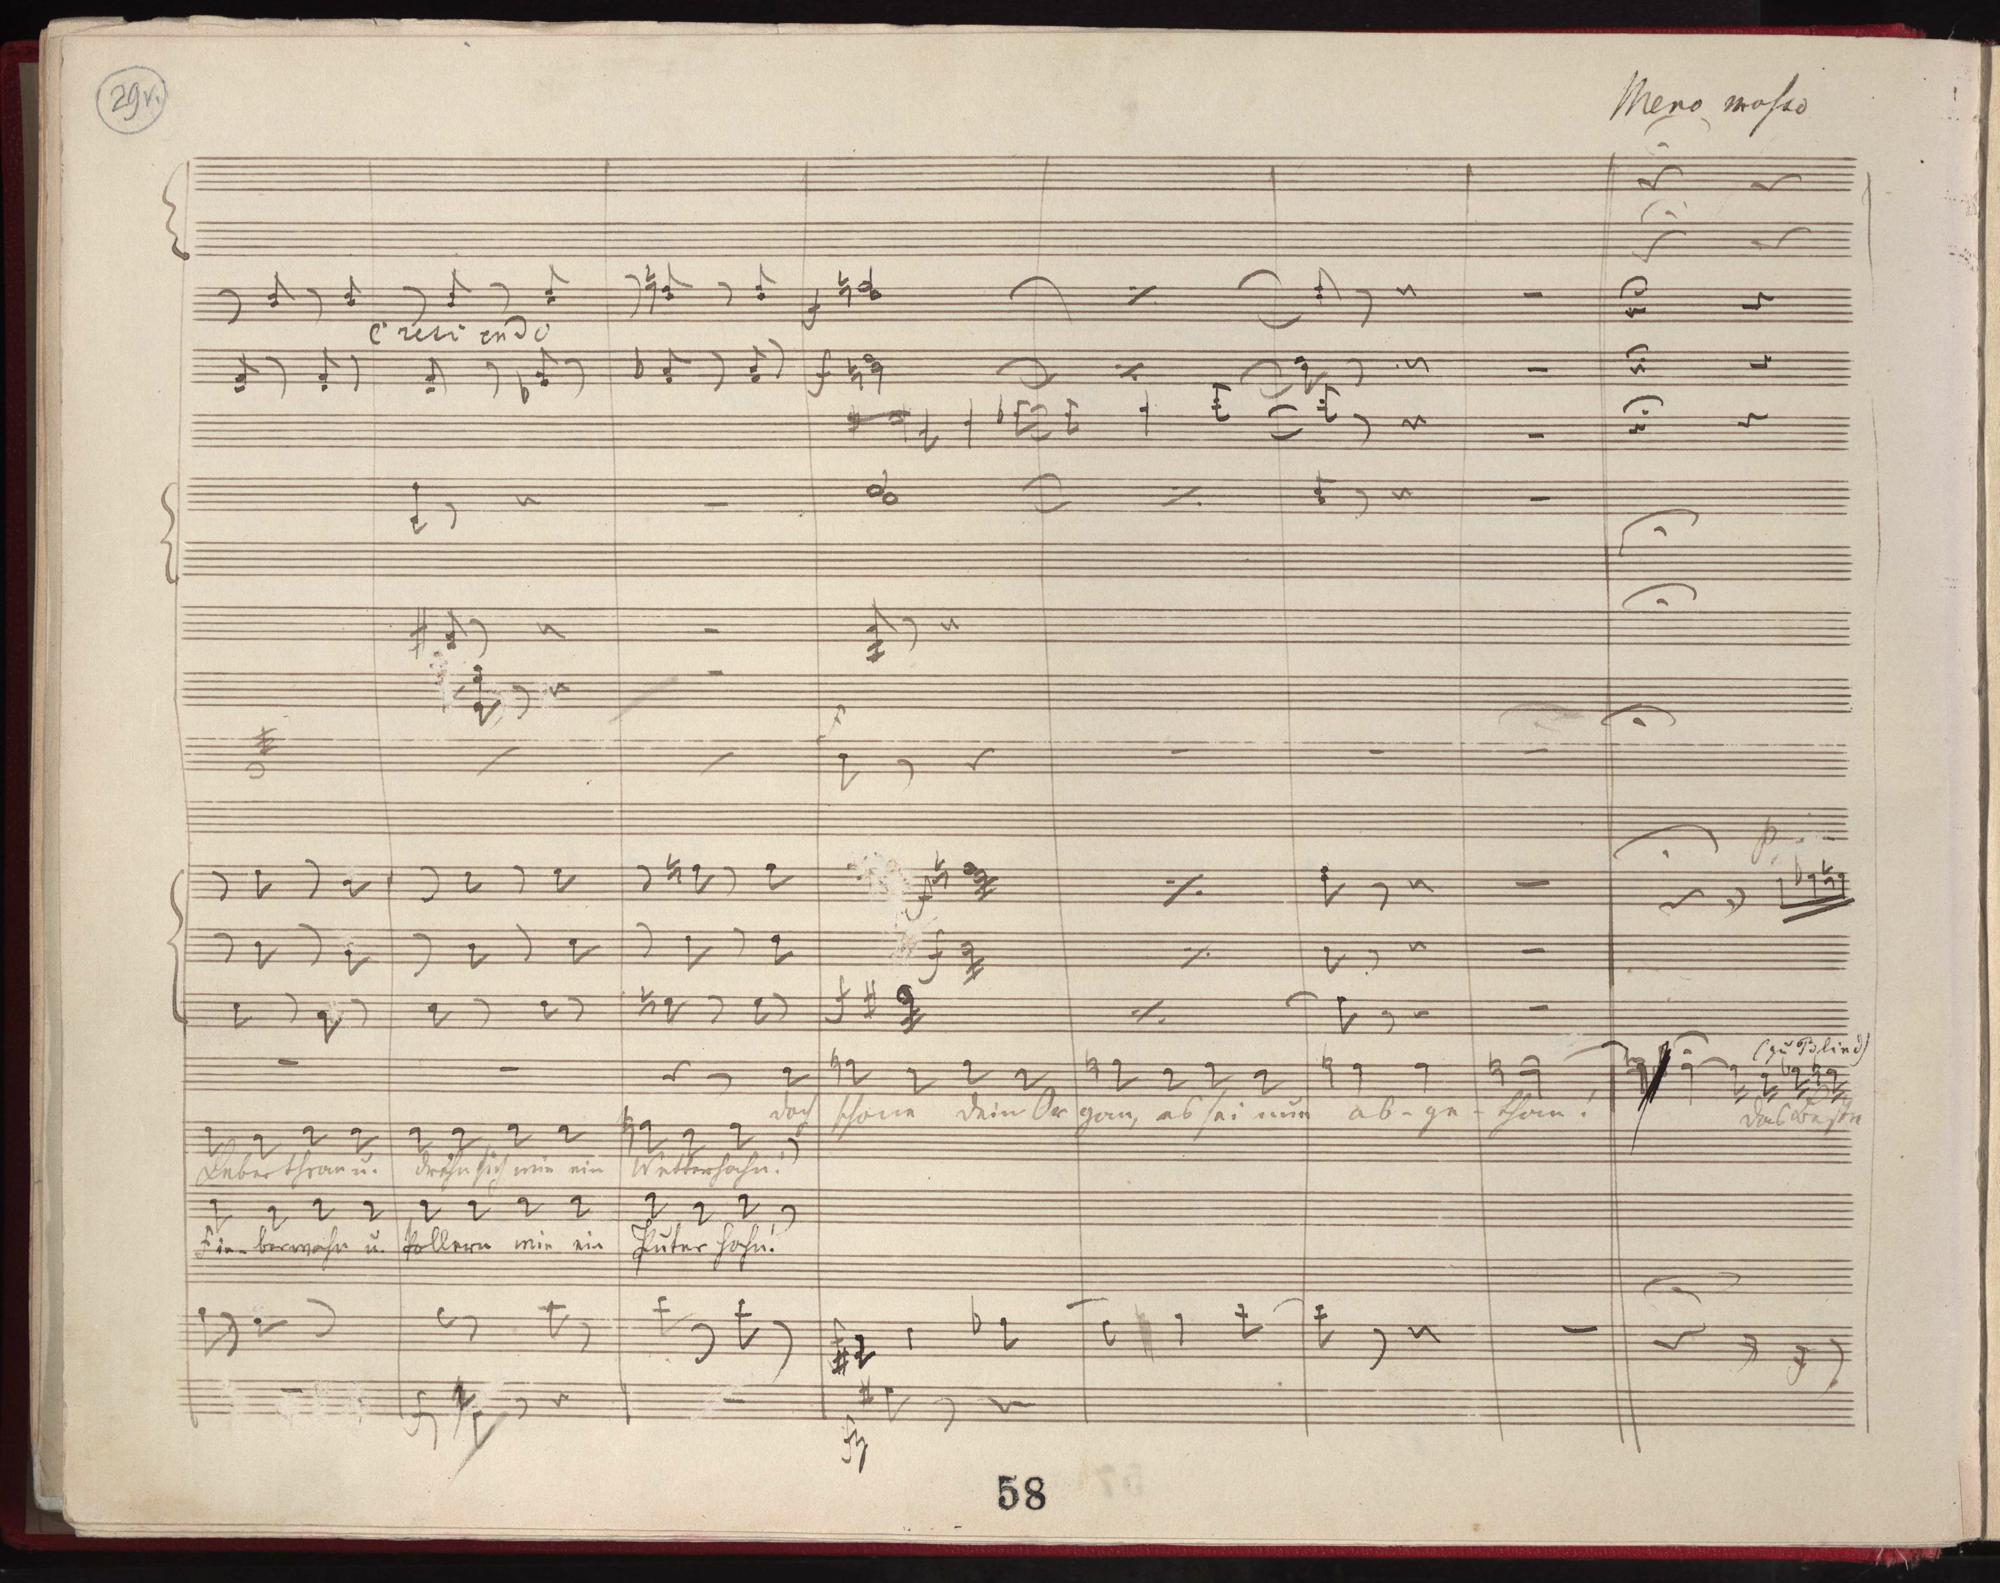 29v.
Meno mosso
crescendo
f
f
f
p
f
f
f
(zu Blind)
doch schone dein Organ, es sei nun ab-ge-than! das Beste
Leberthran u. drehn sich wie ein Wetterhahn!
Fieberwahn u. kollern wie ein Puterhahn!
f
fz
fz
58